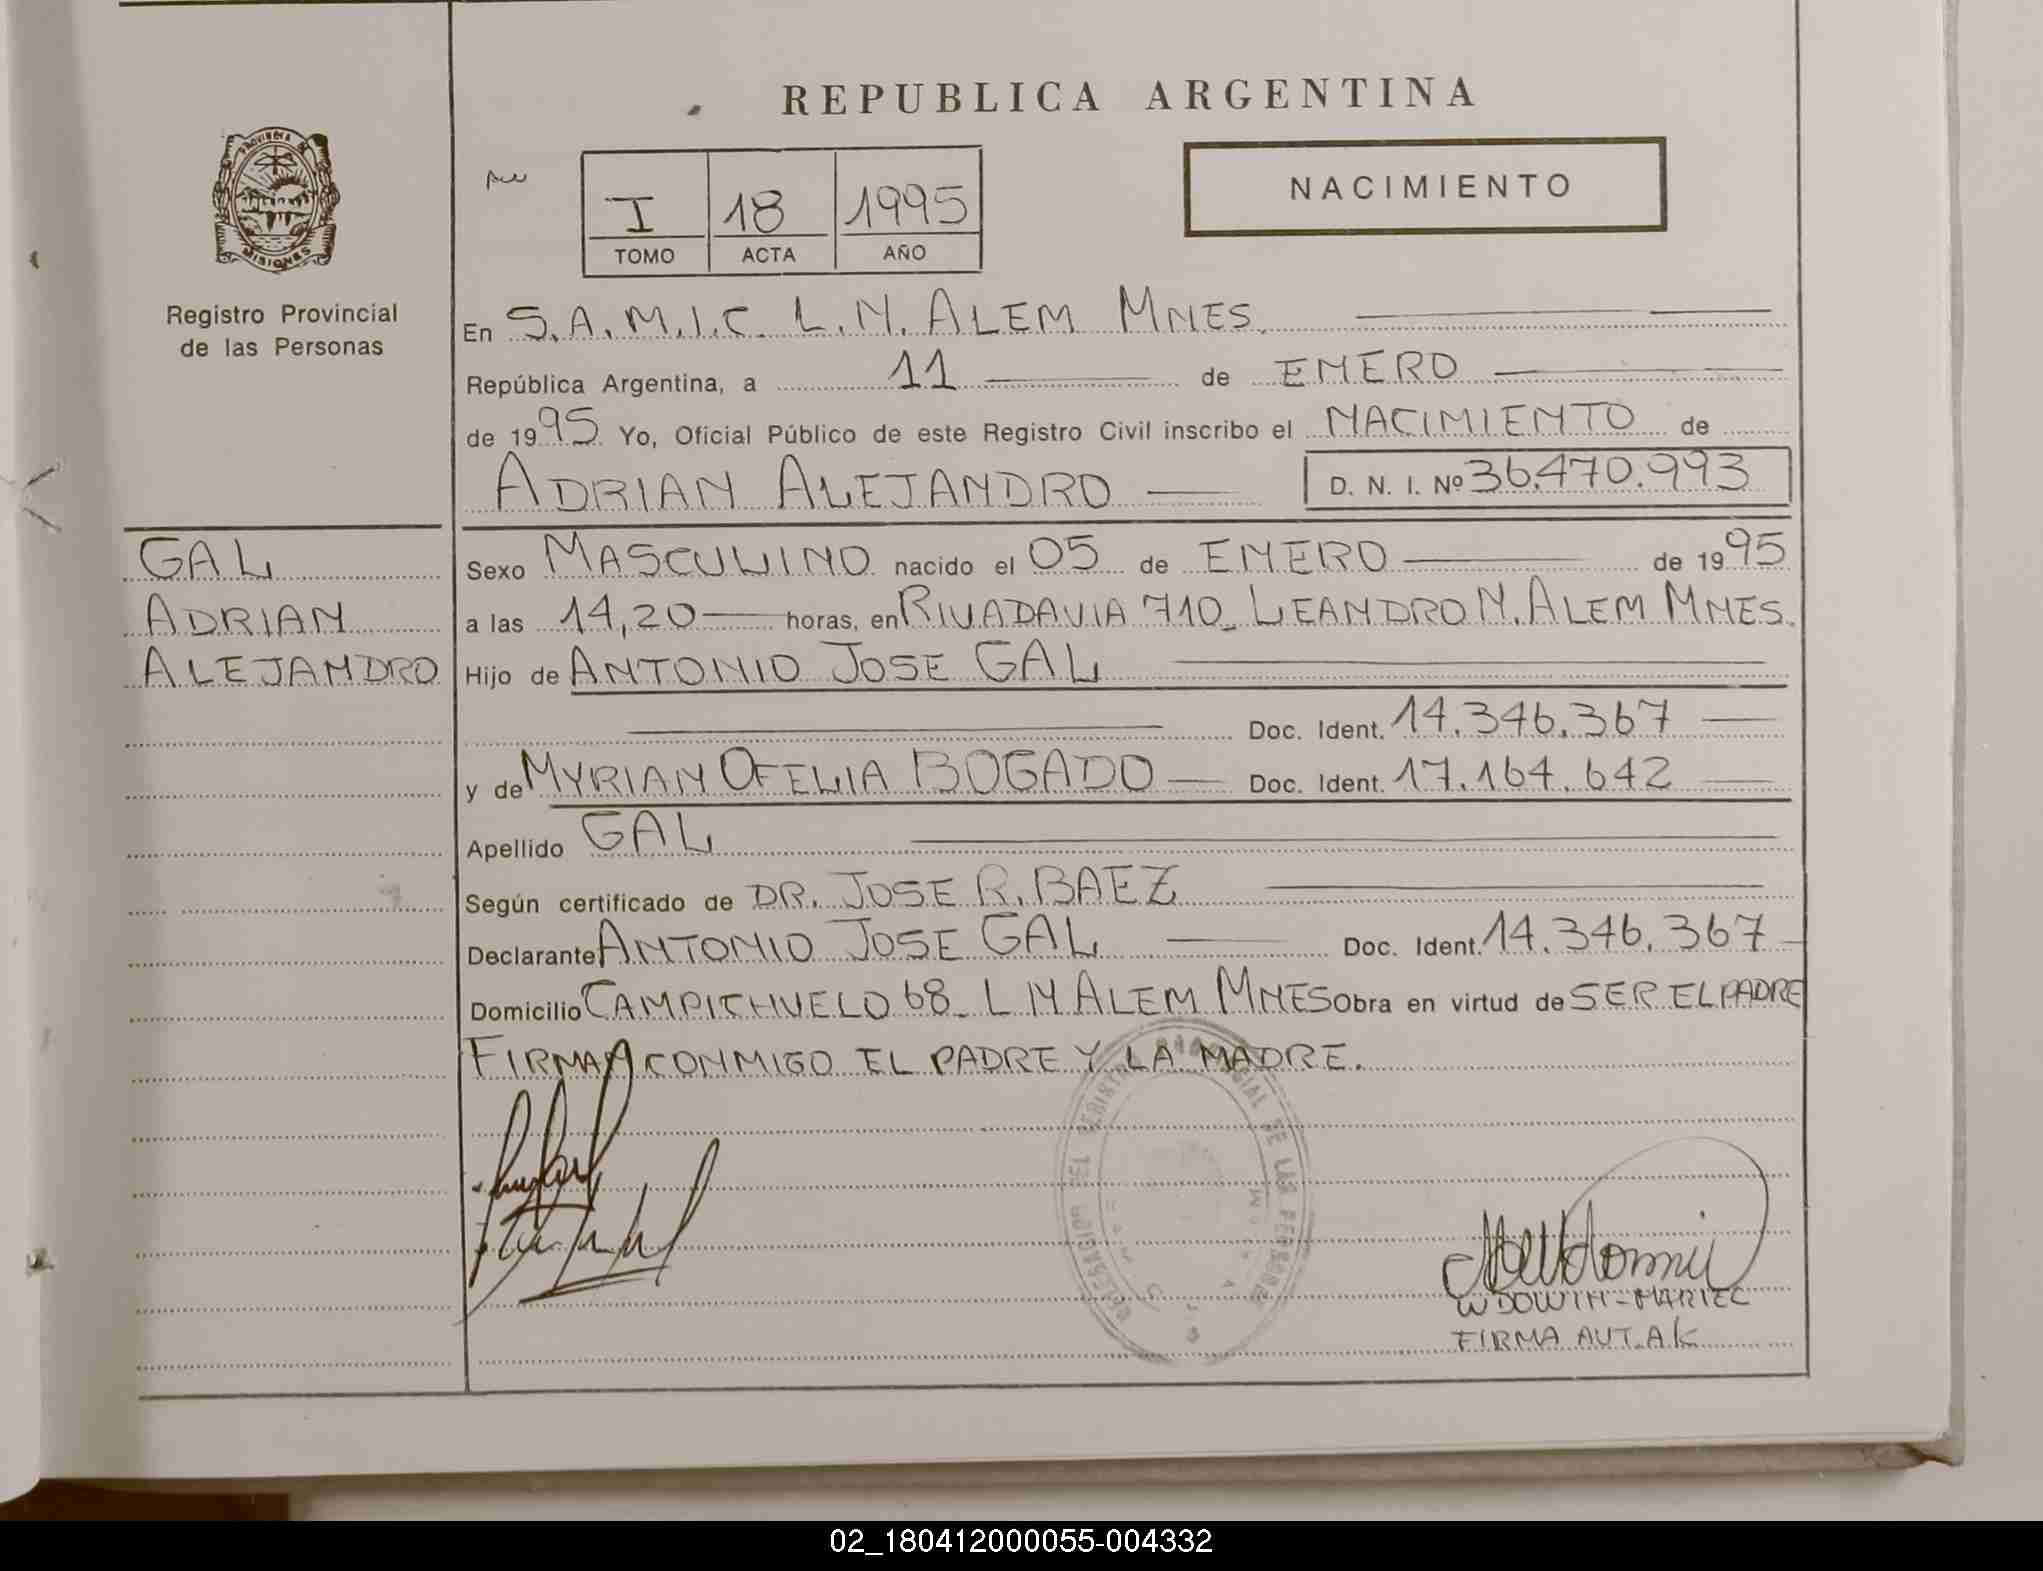 REPUBLICA ARGENTINA
PROVINCIA DE
MISIONES
Registro Provincial
de las Personas
I 18 1995
TOMO ACTA AÑO
NACIMIENTO
En S.A.M.I.C. L.N. ALEM MNES.
República Argentina, a 11 de ENERO
de 1995 Yo, Oficial Público de este Registro Civil inscribo el NACIMIENTO de
ADRIAN ALEJANDRO D. N. I. Nº 36.470.993
GAL
ADRIAN
ALEJANDRO
Sexo MASCULINO nacido el 05 de ENERO de 1995
a las 14,20 horas, en RIVADAVIA 710_ LEANDRO N. ALEM MNES.
Hijo de ANTONIO JOSE GAL
Doc. Ident. 14.346.367
y de MYRIAN OFELIA BOGADO Doc. Ident. 17.164.642
Apellido GAL
Según certificado de DR. JOSE R. BAEZ
Declarante ANTONIO JOSE GAL Doc. Ident. 14.346.367
Domicilio CAMPICHUELO 68_ L N ALEM MNES Obra en virtud de SER EL PADRE
FIRMAN CONMIGO EL PADRE Y LA MADRE.
DELEGACION DEL REGISTRO PROVINCIAL DE LAS PERSONAS
WDOWIN-MARIEL
FIRMA AUT. A K
02_180412000055-004332